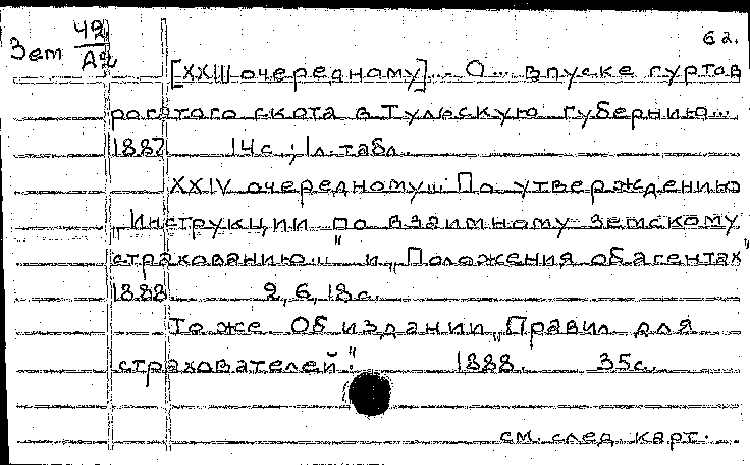 Зем 42/А2 62.
[XXIII очередному]... О... впуске гуртов
рогатого скота в Тульскую губернию...
1887. 14с.; 1л. табл.
XXIV очередному... По утверждению
"Инструкции по взаимному земскому
страхованию..." и "Положения об агентах"
1888. 2, 6, 18с.
То же. Об издании "Правил для
страхователей". 1888. 35с.
см. след. карт.